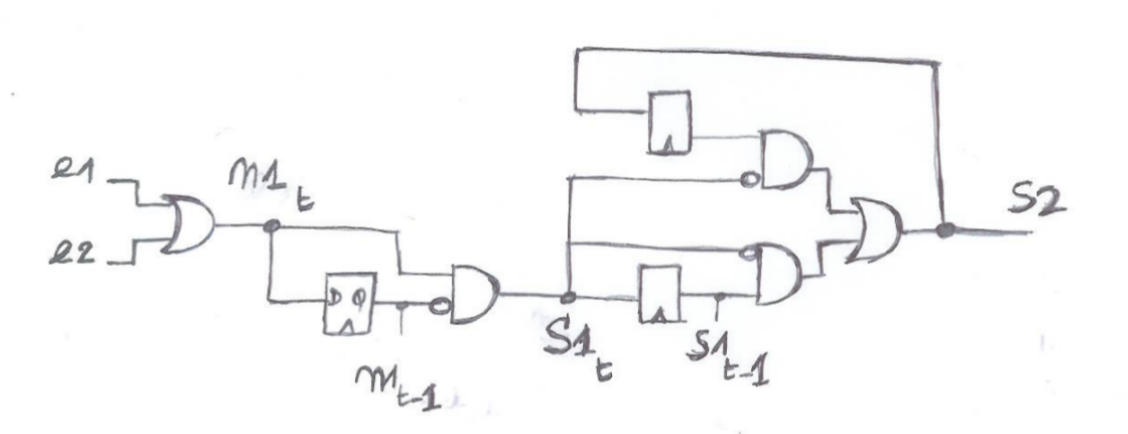 e1
e2
m1 t
D Q
m t-1
S1 t
S1 t-1
S2